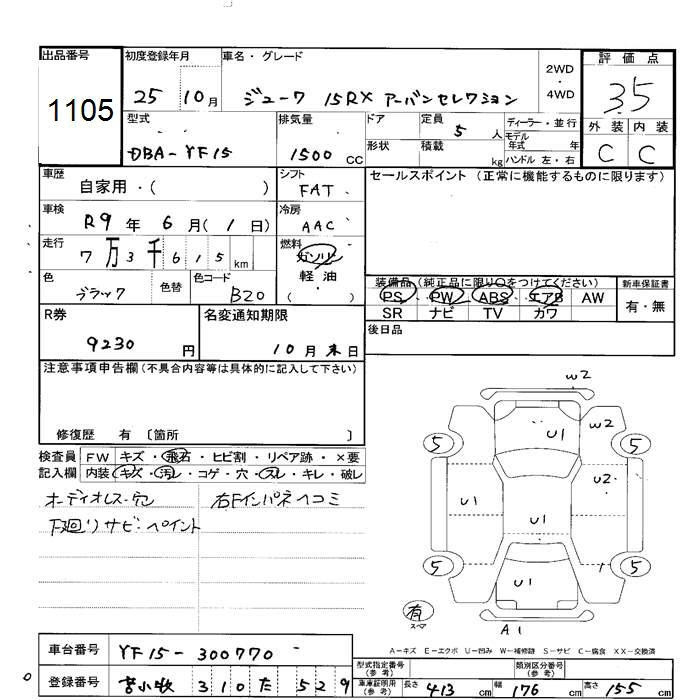 出品番号 初度登録年月 車名・グレード 評価点
1105 25 10月 ジューク 15RX アーバンセレクション 2WD・4WD 3.5
型式 排気量 ドア 定員 ディーラー・並行 外装 内装
DBA-YF15 1500CC 形状 積載 5人 kg モデル年式 年 ハンドル 左・右 C C
車歴 シフト セールスポイント(正常に機能するものに限ります)
自家用・( ) FAT
車検 冷房
R9年 6月(1日) AAC
走行 燃料
7万3千615km ガソリン
軽・油
( )
色 色替 色コード 装備品(純正品に限り○をつけてください) 新車保証書
ブラック B20 PS PW ABS エアB AW 有・無
SR ナビ TV カワ
R券 名変通知期限 後日品
9230円 10月末日
注意事項申告欄(不具合内容等は具体的に記入して下さい)
修復歴 有 〔箇所 〕
検査員記入欄 FW キズ・飛石・ヒビ割・リペア跡・×要
内装 キズ・汚レ・コゲ・穴・スレ・キレ・破レ
オーディオレス・穴 右Fインパネヘコミ
下廻りサビ・ペイント
W2
U1 W2
5 5
U1 U1 U2
5 5
U1
有
スペア
A1
A-キズ E-エクボ U-凹み W-補修跡 S-サビ C-腐食 XX-交換済
車台番号 YF15-300770 型式指定番号(参考) 類別区分番号(参考)
登録番号 苫小牧 310 た 529 車庫証明用(参考) 長さ 413cm 幅 176cm 高さ 155cm